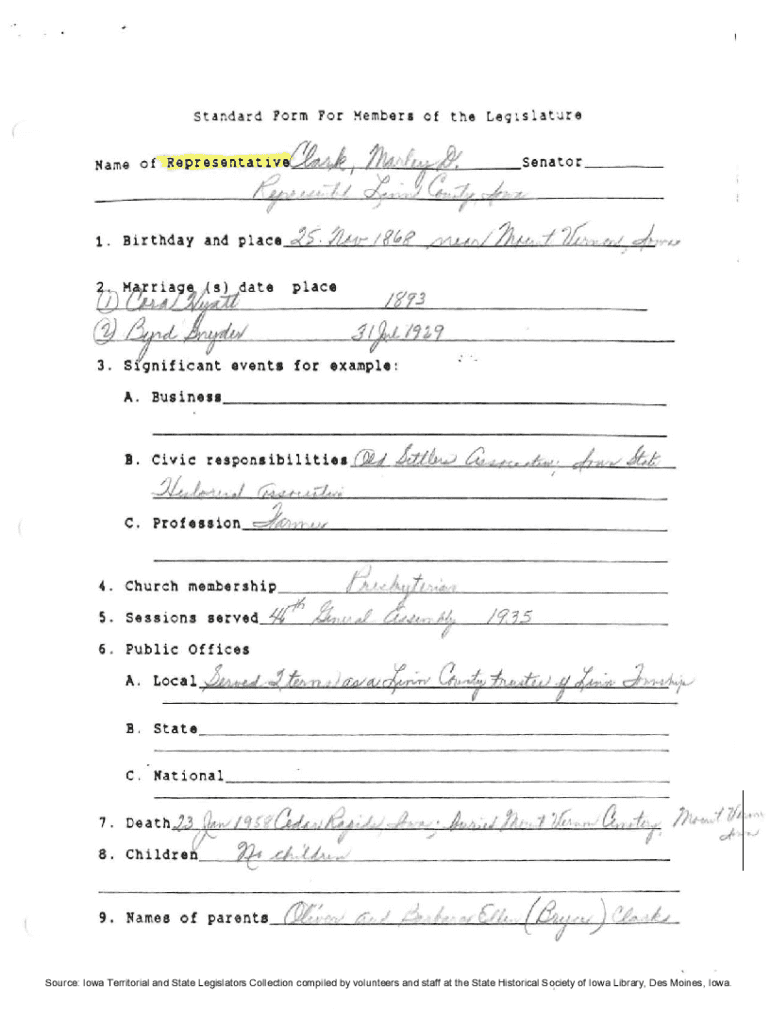 Standard Form For Members of the Legislature
Name of Representative Clark, Marley D. Senator
Represented Linn County, Iowa
1. Birthday and place 25 Nov 1868 near Mount Vernon, Iowa
2. Marriage (s) date place
(1) Cora Wyatt 1893
(2) Byrd Snyder 31 Jul 1929
3. Significant events for example:
A. Business
B. Civic responsibilities Old Settlers Association; Iowa State
Historical Association
C. Profession Farmer
4. Church membership Presbyterian
5. Sessions served 46th General Assembly 1935
6. Public Offices
A. Local Served 2 terms as a Linn County trustee of Linn Township
B. State
C. National
7. Death 23 Jan 1958 Cedar Rapids, Iowa; buried Mount Vernon Cemetery, Mount Vernon
Iowa
8. Children No children
9. Names of parents Oliver and Barbara Ellen (Bryne) Clark
Source: Iowa Territorial and State Legislators Collection compiled by volunteers and staff at the State Historical Society of Iowa Library, Des Moines, Iowa.